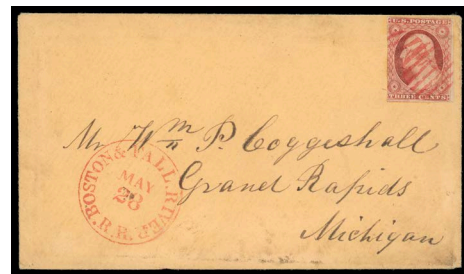 U.S. POSTAGE
THREE CENTS
Mr Wm P. Coggeshall
Grand Rapids
Michigan
BOSTON & FALL RIVER R.R.
MAY
28